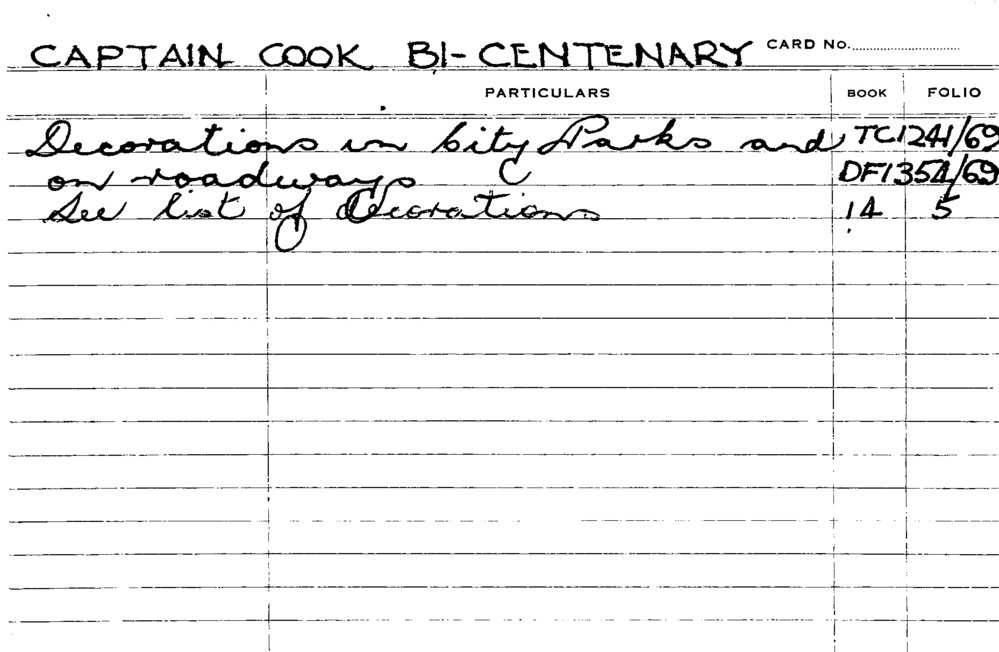 CAPTAIN COOK BI-CENTENARY CARD No.
PARTICULARS BOOK FOLIO
Decorations in City Parks and TC1241/69
on roadways DF1354/69
See list of Decorations 14 5